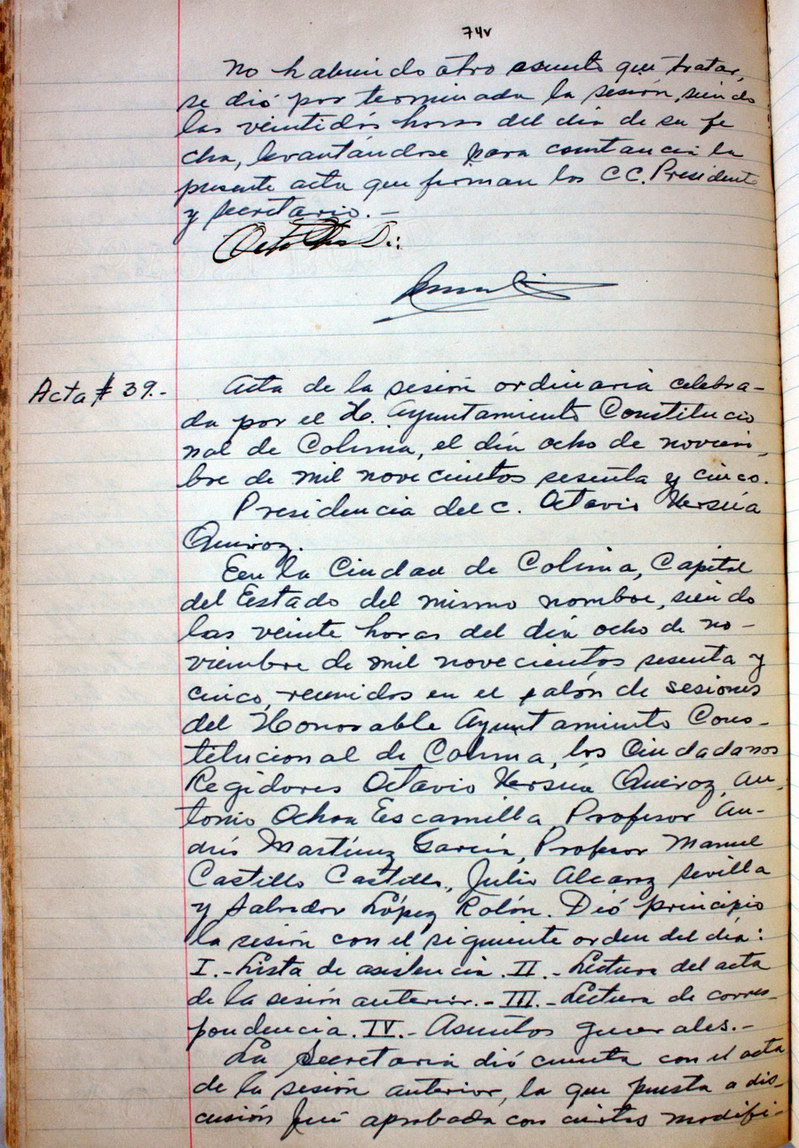 74v
No habiendo otro asunto que tratar,
se dió por terminada la sesión, siendo
las veintidós horas del día de su fe
cha, levantándose para constancia la
presente acta que firman los CC. Presidente
y secretario.-
Acta # 39.-
Acta de la sesión ordinaria celebra-
da por el H. Ayuntamiento Constitucio
nal de Colima, el día ocho de noviem
bre de mil novecientos sesenta y cinco.
Presidencia del C. Octavio Ursúa
Quiroz.
En la Ciudad de Colima, Capital
del Estado del mismo nombre, siendo
las veinte horas del día ocho de no-
viembre de mil novecientos sesenta y
cinco, reunidos en el salón de sesiones
del Honorable Ayuntamiento Cons-
titucional de Colima, los Ciudadanos
Regidores Octavio Ursúa Quiroz, An-
tonio Ochoa Escamilla, Profesor An-
drés Martínez García, Profesor Manuel
Castillo Castillo, Julio Alcaraz Sevilla
y Salvador López Rolón. Dió principio
la sesión con el siguiente orden del día:
I.- Lista de asistencia. II.- Lectura del acta
de la sesión anterior.- III.- Lectura de corres-
pondencia. IV.- Asuntos generales.-
La Secretaría dió cuenta con el acta
de la sesión anterior, la que puesta a dis-
cusión fué aprobada con ciertas modifi-